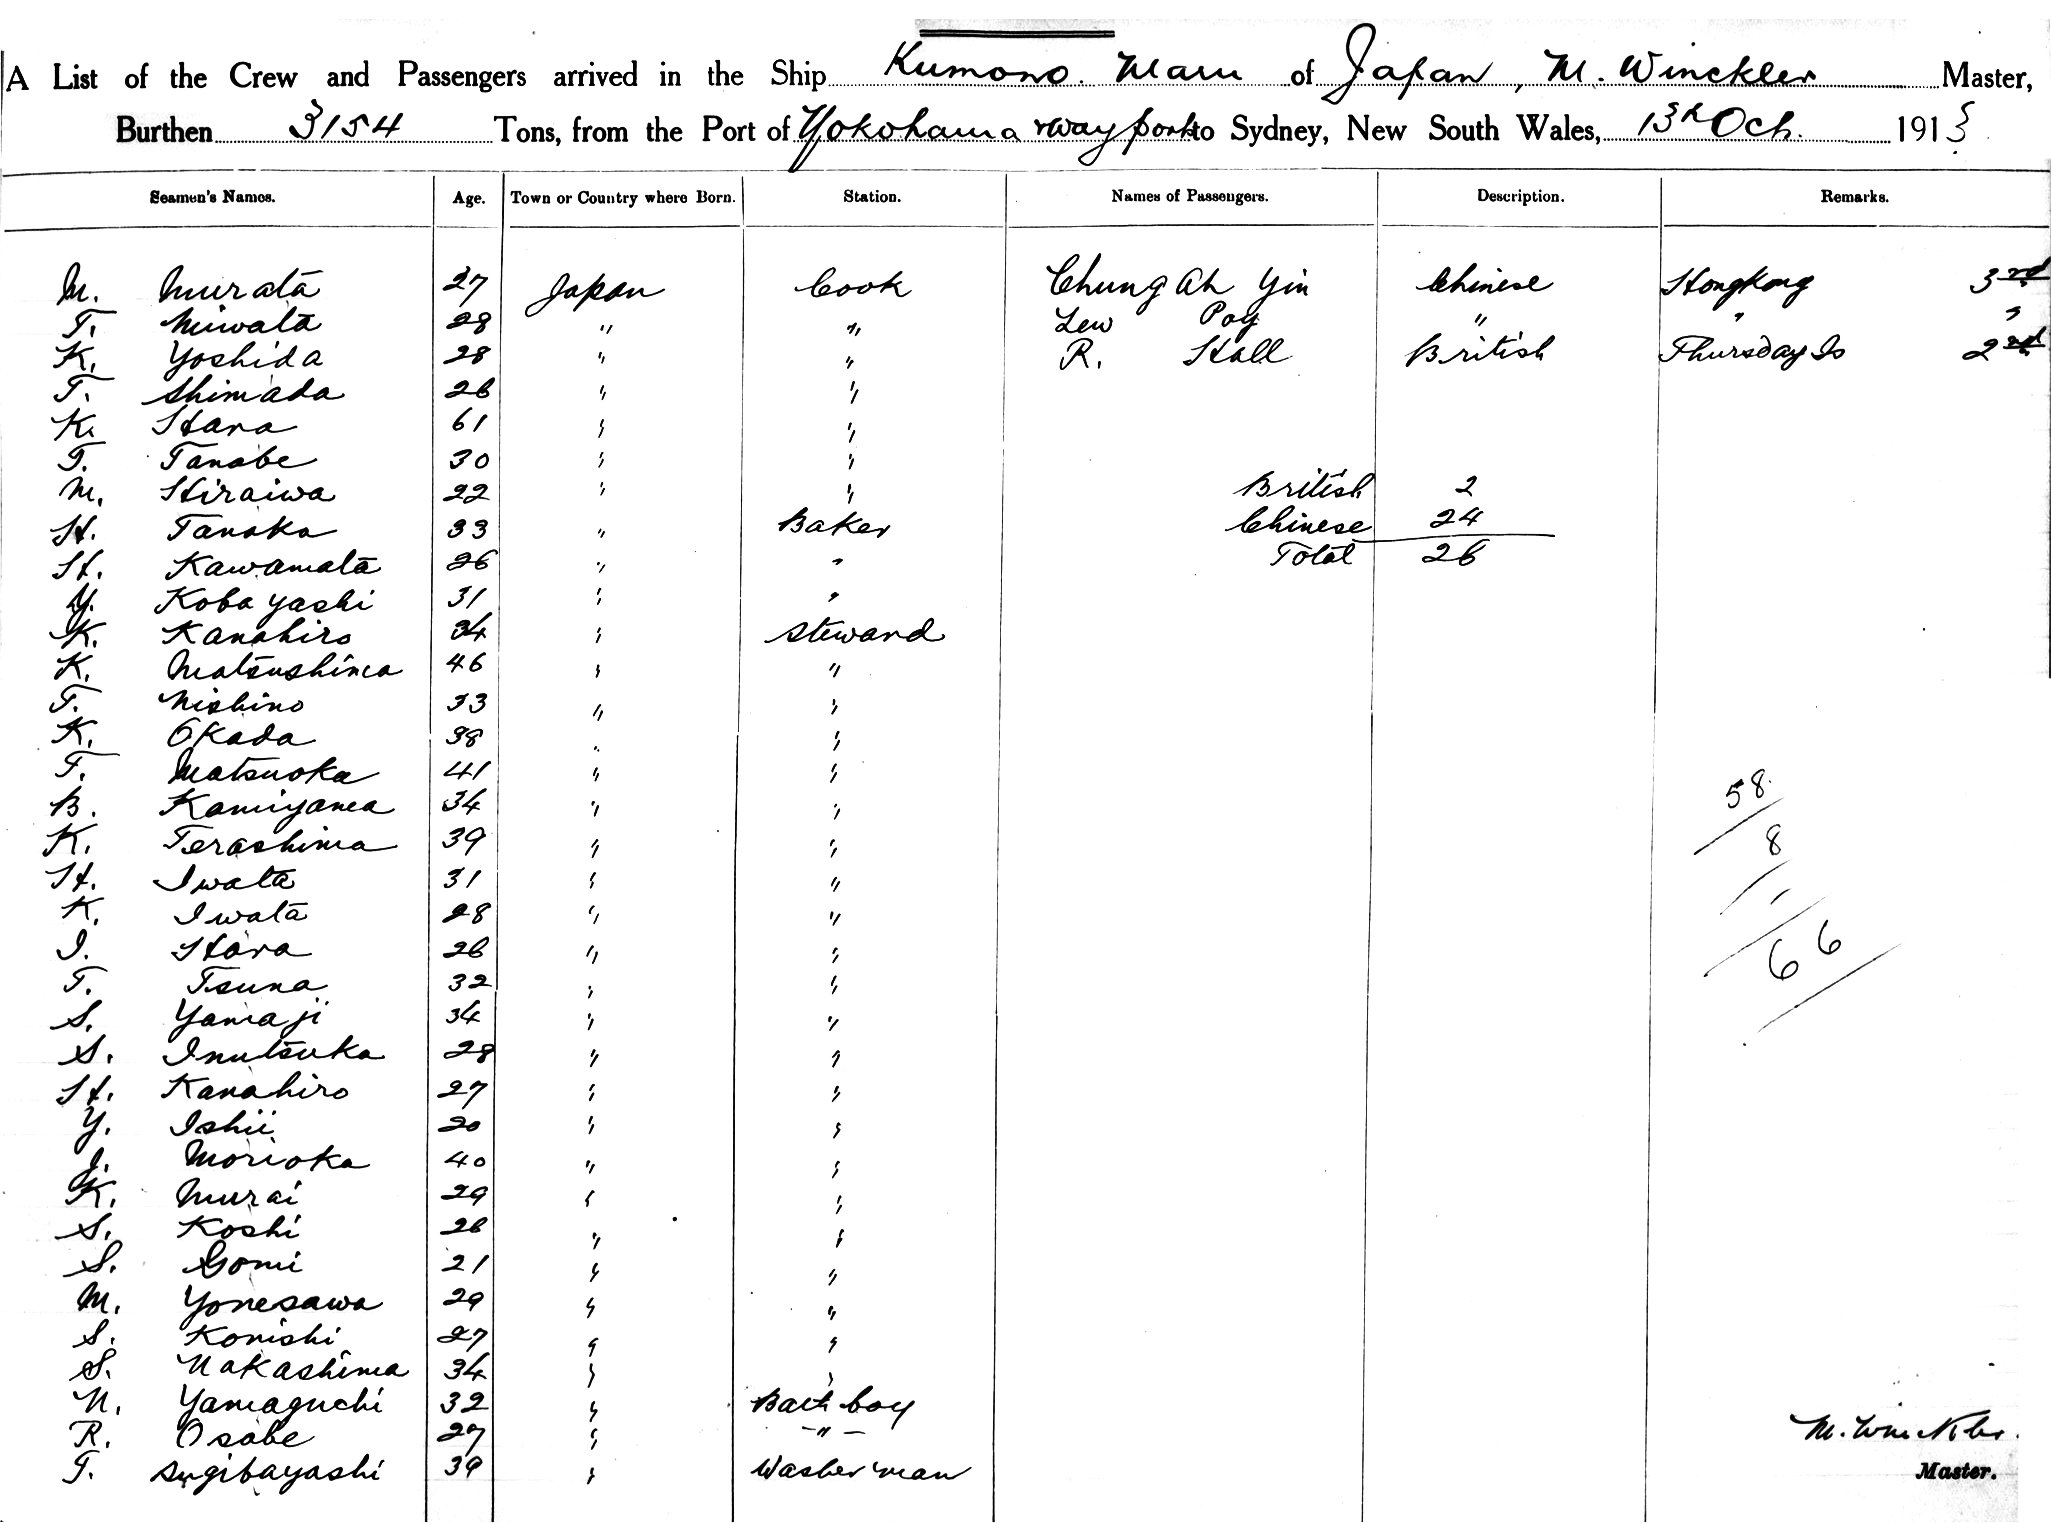 A List of the Crew and Passengers arrived in the Ship Kumono Maru of Japan, M. Winckler Master,
Burthen 3154 Tons, from the Port of Yokohama & way ports to Sydney, New South Wales, 13th Oct. 1913
Seamen's Names. Age. Town or Country where Born. Station. Names of Passengers. Description. Remarks.
M. Murata 27 Japan Cook Chung Ah Yin Chinese Hongkong 3rd
T. Miwata 28 " " Lew Poy " " "
K. Yoshida 28 " " R. Hall British Thursday Is 2nd
T. Shimada 26 " "
K. Hara 61 " "
T. Tanabe 30 " "
M. Hiraiwa 22 " " British 2
H. Tanaka 33 " Baker Chinese 24
H. Kawamata 26 " " Total 26
Y. Kobayashi 31 " "
K. Kanahiro 34 " Steward
K. Matsushima 46 " "
T. Nishino 33 " "
K. Okada 38 " "
T. Matsuoka 41 " "
B. Kamiyama 34 " " 58
K. Terashima 39 " " 8
H. Iwata 31 " "
K. Iwata 28 " "
I. Hara 26 " " 66
T. Tsuna 32 " "
S. Yamaji 34 " "
S. Inutsuka 28 " "
H. Kanahiro 27 " "
Y. Ishii 20 " "
J. Morioka 40 " "
K. Murai 29 " "
S. Koshi 26 " "
S. Gomi 21 " "
M. Yonesawa 29 " "
S. Konishi 27 " "
S. Nakashima 34 " "
N. Yamaguchi 32 " Bath boy
R. Osabe 27 " " M. Winckler.
T. Sugibayashi 39 " Washerman Master.